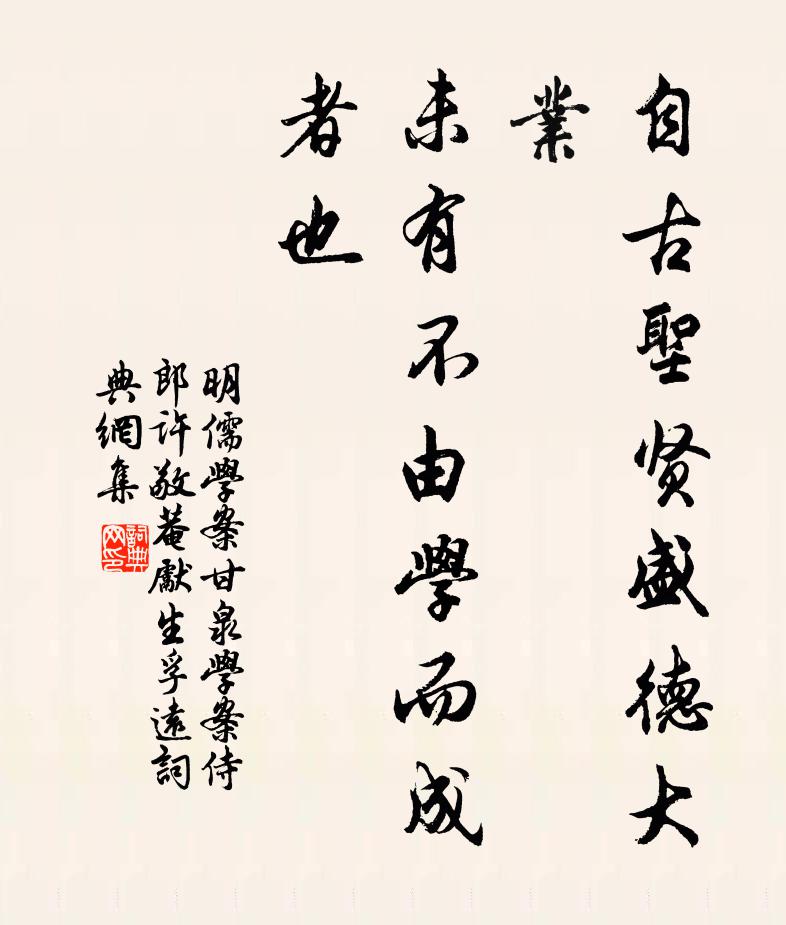 自古聖贤盛德大
業
未有不由學而成
者也
明儒學案甘泉學案侍
郎許敬菴獻生孚遠詞
典網集
詞典
网印